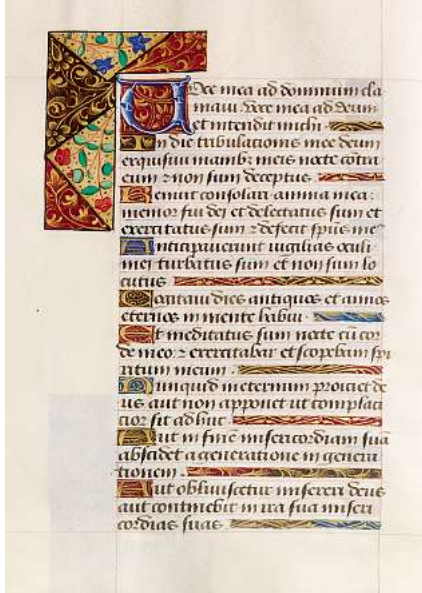 Voce mea ad dominum cla
maui. Voce mea ad deum
et intendit michi.
In die tribulationis mee deum
exquisiui manib⁊ meis nocte cōtra
eum ⁊ non sum deceptus.
Renuit consolari anima mea:
memor fui dei et delectatus sum et
exercitatus sum ⁊ defecit spūs me⁹
Anticipauerunt vigilias oculi
mei turbatus sum et non sum lo
cutus
Cogitaui dies antiquos et annos
eternos in mente habui.
Et meditatus sum nocte cū cor
de meo: ⁊ exercitabar et scopebam spi
ritum meum.
Nunquid in eternum proiciet de
us aut non apponet ut complaci
cior sit adhuc.
Aut in finē misericordiam suā
abscidet a generatione in genera
tionem.
Aut obliuiscetur misereri deus
aut continebit in ira sua miseri
cordias suas.